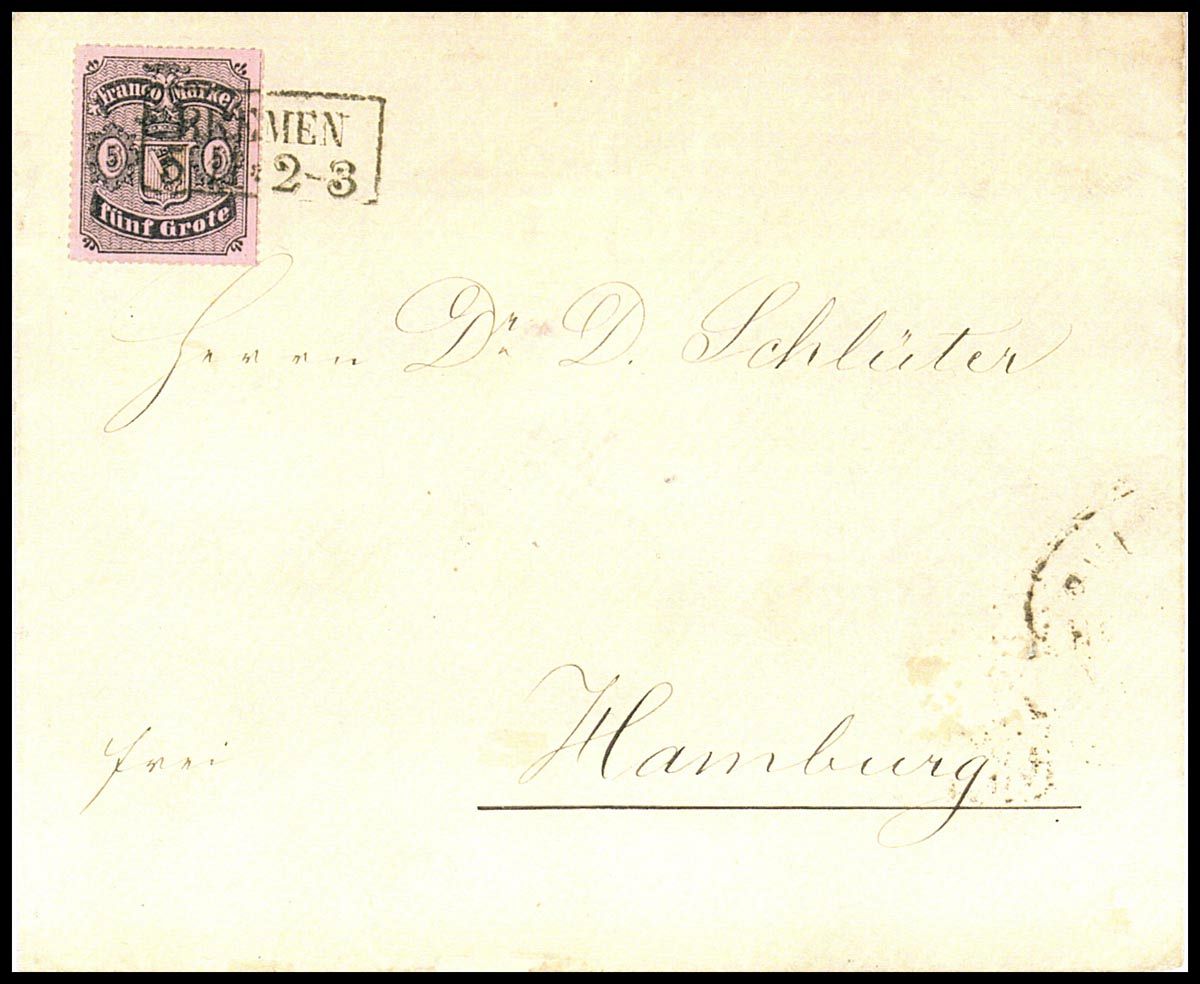 Franco Marke
BREMEN
5 5
2-3
fünf Grote
Herrn Dr. D. Schlüter
Hamburg
frei